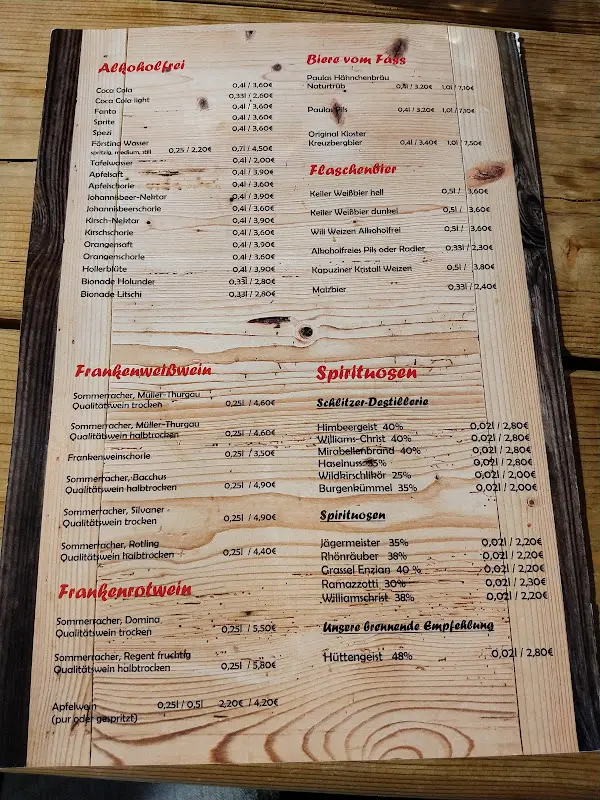 Alkoholfrei
Coca Cola 0,4l / 3,60€
Coca Cola light 0,33l / 2,60€
Fanta 0,4l / 3,60€
Sprite 0,4l / 3,60€
Spezi 0,4l / 3,60€
Förstina Wasser
spritzig, medium, still 0,25 / 2,20€ 0,7l / 4,50€
Tafelwasser 0,4l / 2,00€
Apfelsaft 0,4l / 3,90€
Apfelschorle 0,4l / 3,60€
Johannisbeer-Nektar 0,4l / 3,90€
Johannisbeerschorle 0,4l / 3,60€
Kirsch-Nektar 0,4l / 3,90€
Kirschschorle 0,4l / 3,60€
Orangensaft 0,4l / 3,90€
Orangenschorle 0,4l / 3,60€
Hollerblüte 0,4l / 3,90€
Bionade Holunder 0,33l / 2,80€
Bionade Litschi 0,33l / 2,80€
Frankenweißwein
Sommerracher, Müller-Thurgau
Qualitätswein trocken 0,25l / 4,60€
Sommerracher, Müller-Thurgau
Qualitätswein halbtrocken 0,25l / 4,60€
Frankenweinschorle 0,25l / 3,50€
Sommerracher, Bacchus
Qualitätswein halbtrocken 0,25l / 4,90€
Sommerracher, Silvaner
Qualitätswein trocken 0,25l / 4,90€
Sommerracher, Rotling
Qualitätswein halbtrocken 0,25l / 4,40€
Frankenrotwein
Sommerracher, Domina
Qualitätswein trocken 0,25l / 5,50€
Sommerracher, Regent fruchtig
Qualitätswein halbtrocken 0,25l / 5,80€
Apfelwein 0,25l / 0,5l 2,20€ / 4,20€
(pur oder gespritzt)
Biere vom Fass
Paulas Hähnchenbräu
Naturtrüb 0,4l / 3,20€ 1,0l / 7,10€
Paulas Pils 0,4l / 3,20€ 1,0l / 7,10€
Original Kloster
Kreuzbergbier 0,4l / 3,40€ 1,0l / 7,50€
Flaschenbier
Keiler Weißbier hell 0,5l / 3,60€
Keiler Weißbier dunkel 0,5l / 3,60€
Will Weizen Alkoholfrei 0,5l / 3,60€
Alkoholfreies Pils oder Radler 0,33l / 2,30€
Kapuziner Kristall Weizen 0,5l / 3,80€
Malzbier 0,33l / 2,40€
Spirituosen
Schlitzer-Destillerie
Himbeergeist 40% 0,02l / 2,80€
Williams-Christ 40% 0,02l / 2,80€
Mirabellenbrand 40% 0,02l / 2,80€
Haselnuss 35% 0,02l / 2,80€
Wildkirschlikör 25% 0,02l / 2,00€
Burgenkümmel 35% 0,02l / 2,00€
Spirituosen
Jägermeister 35% 0,02l / 2,20€
Rhönräuber 38% 0,02l / 2,20€
Grassel Enzian 40 % 0,02l / 2,20€
Ramazzotti 30% 0,02l / 2,30€
Williamschrist 38% 0,02l / 2,20€
Unsere brennende Empfehlung
Hüttengeist 48% 0,02l / 2,80€